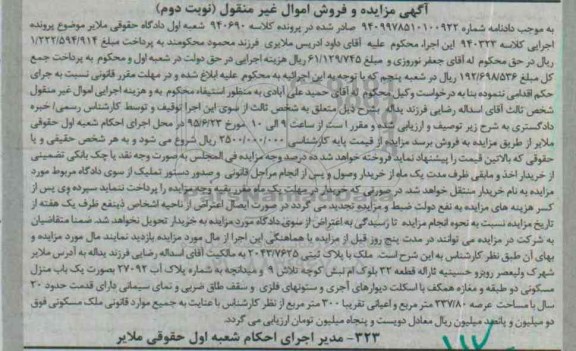 آگهی مزایده و فروش اموال غیر منقول (نوبت دوم)
به موجب دادنامه شماره ۹۴۰۹۹۷۸۵۱۰۱۰۰۹۲۲ صادر شده در پرونده کلاسه ۹۴۰۶۹۰ شعبه اول دادگاه حقوقی ملایر موضوع پرونده
اجرایی کلاسه ۹۴۰۳۲۲ این اجرا، محکوم علیه آقای داود ادریس ملایری فرزند محمود محکومند به پرداخت مبلغ ۱/۲۲۲/۵۹۴/۹۱۴
ریال در حق محکوم له آقای جعفر نوروزی و مبلغ ۶۱/۱۲۹/۷۴۵ ریال هزینه اجرایی در حق دولت در شعبه اول و محکوم به پرداخت جمع
کل مبلغ ۱۹۲/۶۹۸/۵۳۶ ریال در شعبه پنجم که با توجه به این اجرائیه به محکوم علیه ابلاغ شده و در مهلت مقرر قانونی نسبت به اجرای
حکم اقدامی ننموده بنا به درخواست وکیل محکوم له آقای حمید علی آبادی به منظور استیفاء محکوم به و هزینه اجرایی اموال غیر منقول
شخص ثالث آقای اسداله رضایی فرزند یداله بشرح ذیل متعلق به شخص ثالث از سوی این اجرا توقیف و توسط کارشناس رسمی/ خبره
دادگستری به شرح زیر توصیف و ارزیابی شده و مقرر است از ساعت ۹ الی ۱۰ مورخ ۹۵/۶/۲۳ در محل اجرای احکام شعبه اول حقوقی
ملایر از طریق مزایده به فروش برسد مزایده از قیمت پایه کارشناسی ۲۵۰۰/۰۰۰/۰۰۰ ریال شروع می شود و به هر شخص حقیقی و یا
حقوقی که بالاترین قیمت را پیشنهاد نماید فروخته خواهد شد. ده درصد وجه مزایده فی المجلس به صورت وجه نقد یا چک بانکی تضمینی
از خریدار اخذ و مابقی ظرف مدت یک ماه از خریدار وصول و پس از انجام مراحل قانونی و صدور دستور تملیک از سوی دادگاه مربوط مورد
مزایده به نام خریدار منتقل خواهد شد. در صورتی که خریدار در مهلت یک ماه مقرر بقیه وجه مزایده را پرداخت ننماید سپرده وی پس از
کسر هزینه های مزایده به نفع دولت ضبط و مزایده تجدید می گردد در صورت ایصال اعتراض از ناحیه اشخاص ذینفع ظرف یک هفته از
تاریخ مزایده نسبت به نحوه انجام مزایده تا رسیدگی به اعتراض از سوی دادگاه مورد مزایده به خریدار تحویل نخواهد شد. ضمنا متقاضیان
به شرکت در مزایده می توانند در مدت پنج روز قبل از مزایده با هماهنگی این اجرا از مال مورد مزایده بازدید نمایند مال مورد مزایده و
بهای آن طبق نظر کارشناس به این شرح است. ملک با پلاک ثبتی ۲۰۴۳/۷۶۲۵ به مالکیت آقای اسداله رضایی فرزند یداله به آدرس ملایر
شهرک ولیعصر روبرو حسینیه ثاراله قطعه ۳۲ بلوک ام نبش کوچه تلاش ۹ و میدانچه به شماره پلاک آب ۲۷۰۹۲ بصورت یک باب منزل
مسکونی دو طبقه و مغازه همکف با اسکلت دیوارهای آجری و ستونهای فلزی و سقف طاق ضربی و نمای سیمانی دارای قدمت حدود ۲۰
سال با مساحت عرصه ۲۳۷/۸۰ متر مربع و اعیانی تقریبا ۳۰۰ متر مربع از نظر کارشناس با عنایت به جمیع موارد قانونی ملک مسکونی فوق
دو میلیون و پانصد میلیون ریال معادل دویست و پنجاه میلیون تومان ارزیابی می گردد.
۳۲۳- مدیر اجرای احکام شعبه اول حقوقی ملایر